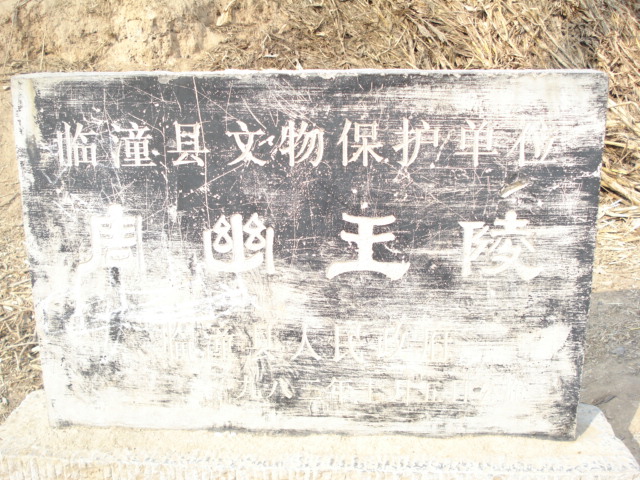 临潼县文物保护单位
周幽王陵
临潼县人民政府
九八二年十月